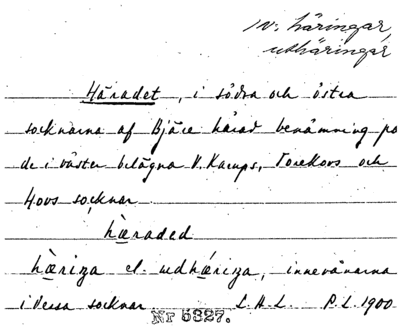 1 v: häringar,
uthäringar
Häradet, i södra och östra
socknarna af Bjäre härad benämning på
de i väster belägna V. Karups, Torekovs och
Hovs socknar
hæraded
hæriŋa el. udhæriŋa, innevånarna
i dessa socknar L.H.L. P.L. 1900
Nr 5327.